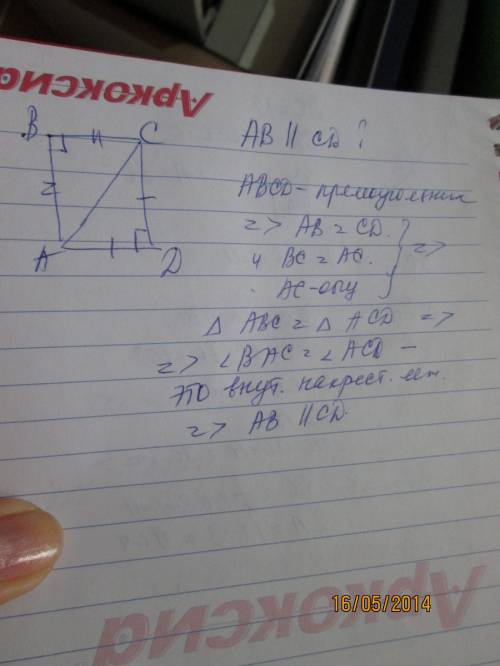 Аркоксиа
B C
A D
AB || CD ?
ABCD - прямоугольник
=> AB = CD.
и BC = AC.
AC - общ
} =>
△ ABC = △ ACD =>
=> ∠BAC = ∠ACD -
это внут. накрест. леж.
=> AB || CD.
16/05/2014
Аркоксиа